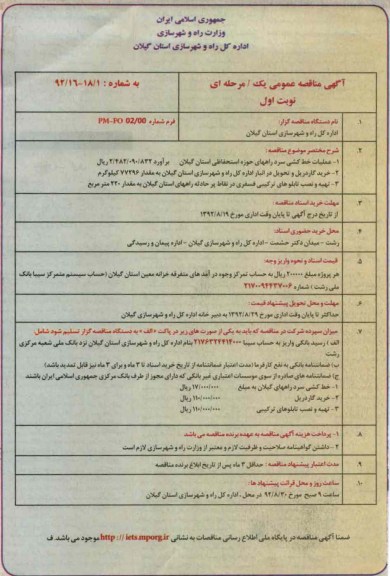 جمهوری اسلامی ایران
وزارت راه و شهرسازی
اداره کل راه و شهرسازی استان گیلان
آگهی مناقصه عمومی یک / مرحله ای
نوبت اول
به شماره : ۹۲/۱۶-۱۸/۱
۱. نام دستگاه مناقصه گزار:
اداره کل راه و شهرسازی استان گیلان
فرم شماره PM-FO 02/00
۲. شرح مختصر موضوع مناقصه:
۱- عملیات خط کشی سرد راههای حوزه استحفاظی استان گیلان برآورد ۲/۲۸۲/۰۹۰/۸۳۲ ریال
۲- خرید گاردریل و تحویل در انبار اداره کل راه و شهرسازی استان گیلان به مقدار ۷۷۲۹۶ کیلوگرم
۳- تهیه و نصب تابلوهای ترکیبی فسفری در نقاط پر حادثه راههای استان گیلان به مقدار ۲۲۰ متر مربع
۳. مهلت خرید اسناد مناقصه:
از تاریخ درج آگهی تا پایان وقت اداری مورخ ۱۳۹۲/۸/۱۹
۴. محل خرید حضوری اسناد:
رشت - میدان دکتر حشمت - اداره کل راه و شهرسازی گیلان - اداره پیمان و رسیدگی
۵. قیمت اسناد و نحوه واریز وجه:
هر پروژه مبلغ ۲۰۰۰۰۰ ریال به حساب تمرکز وجوه درآمدهای متفرقه خزانه معین استان گیلان (حساب سیستم متمرکز سیبا بانک
ملی رشت) شماره ۲۱۷۰۰۹۴۴۳۷۰۰۶
۶. مهلت و محل تحویل پیشنهاد قیمت:
حداکثر تا پایان وقت اداری مورخ ۱۳۹۲/۸/۲۹ به دبیر خانه اداره کل راه و شهرسازی گیلان
۷. میزان سپرده شرکت در مناقصه که باید به یکی از صورت های زیر در پاکت «الف» به دستگاه مناقصه گزار تسلیم شود شامل:
الف) رسید بانکی واریز به حساب سیبا ۲۱۷۶۳۲۴۴۱۴۰۰۰ بنام اداره کل راه و شهرسازی استان گیلان نزد بانک ملی شعبه مرکزی
رشت
ب) ضمانتنامه بانکی به نفع کارفرما (مدت اعتبار ضمانتنامه از تاریخ خرید اسناد تا ۳ ماه و برای ۳ ماه نیز قابل تمدید باشد)
ج) ضمانتنامه های صادره از سوی موسسات اعتباری غیر بانکی که دارای مجوز از طرف بانک مرکزی جمهوری اسلامی ایران باشند
۱- خط کشی سرد راههای گیلان به مبلغ ۱۷/۰۰۰/۰۰۰ ریال
۲- خرید گاردریل ۱۱۰/۰۰۰/۰۰۰ ریال
۳- تهیه و نصب تابلوهای ترکیبی ۱۱۰/۰۰۰/۰۰۰ ریال
۸. ۱- پرداخت هزینه آگهی مناقصه به عهده برنده مناقصه می باشد
۲- داشتن گواهینامه صلاحیت و ظرفیت لازم و معتبر از وزارت راه و شهرسازی لازم است
۹ مدت اعتبار پیشنهاد مناقصه: حداقل ۳ ماه پس از تاریخ ابلاغ برنده مناقصه
۱۰. ساعت روز و محل قرائت پیشنهاد ها:
ساعت ۹ صبح مورخ ۹۲/۸/۳۰ در محل، اداره کل راه و شهرسازی استان گیلان
ضمنا آگهی مناقصه در پایگاه ملی اطلاع رسانی مناقصات به نشانی http://iets.mporg.ir موجود می باشد. ف